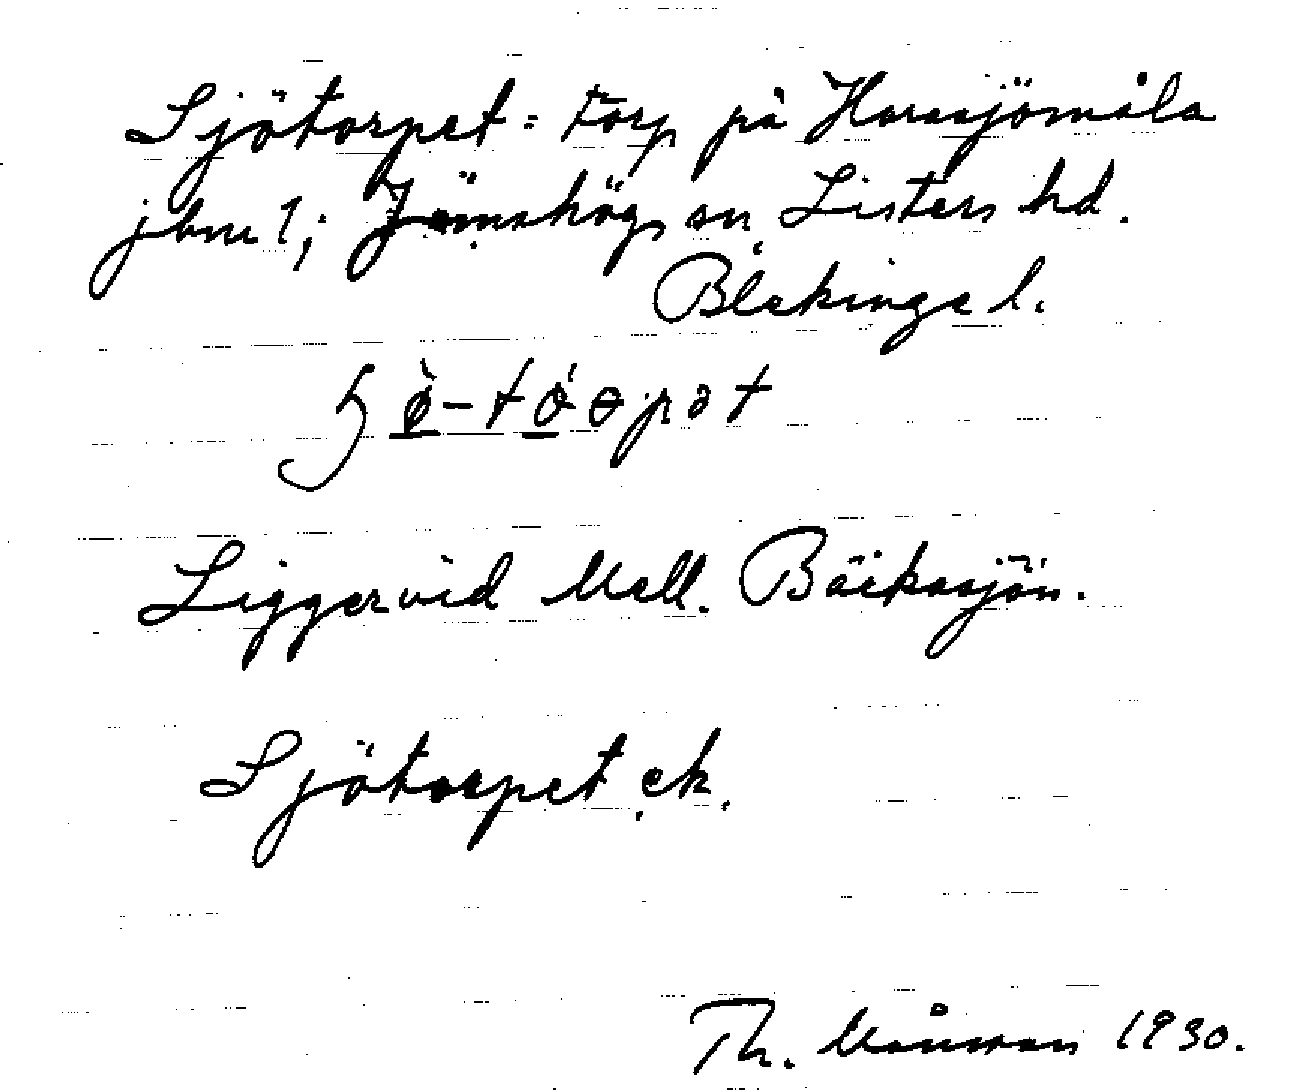 Sjötorpet = torp på Harasjömåla
jbn 1; Jämshögs sn, Listers hd.
Blekinge l.
Ligger vid Mell. Bäckasjön.
Sjötorpet ek.
Th. Månsson 1930.